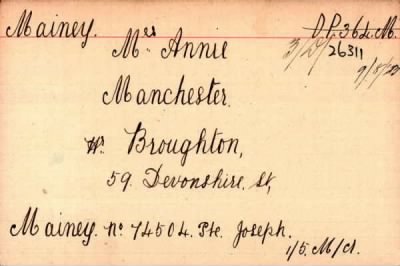 Mainey.
D.P. 364.M.
Mrs Annie
3/D/26311
9/8/22
Manchester.
W. Broughton,
59. Devonshire. St,
Mainey. No 74504. Pte. Joseph.
1/5. M/cr.